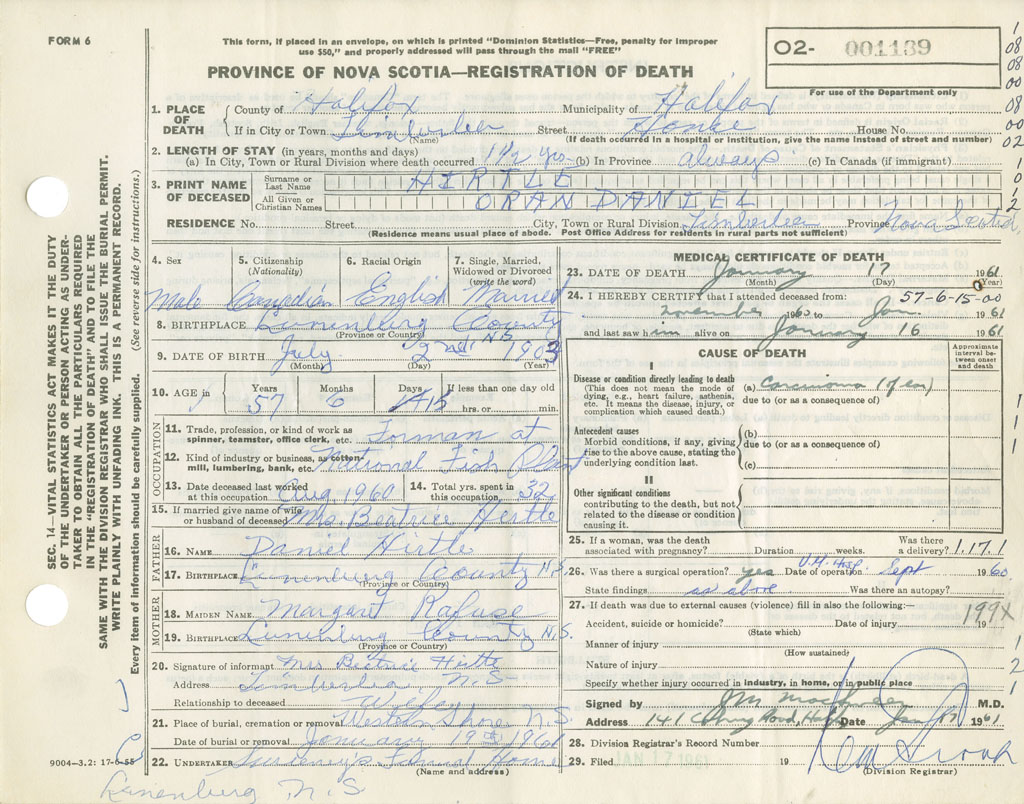 FORM 6
This form, if placed in an envelope, on which is printed "Dominion Statistics—Free, penalty for improper
use $50," and properly addressed will pass through the mail "FREE"
PROVINCE OF NOVA SCOTIA—REGISTRATION OF DEATH
O2- 001139
For use of the Department only
1. PLACE OF DEATH
County of Halifax Municipality of Halifax
If in City or Town Timberlea Street Home House No.
(Name) (If death occurred in a hospital or institution, give the name instead of street and number)
2. LENGTH OF STAY (in years, months and days)
(a) In City, Town or Rural Division where death occurred 1 1/2 yrs (b) In Province always (c) In Canada (if immigrant)
3. PRINT NAME OF DECEASED
Surname or Last Name HIRTLE
All Given or Christian Names ORAN DANIEL
RESIDENCE No. Street City, Town or Rural Division Timberlea Province Nova Scotia
(Residence means usual place of abode. Post Office Address for residents in rural parts not sufficient)
4. Sex 5. Citizenship (Nationality) 6. Racial Origin 7. Single, Married, Widowed or Divorced (write the word)
Male Canadian English Married
8. BIRTHPLACE Lunenburg County N.S
(Province or Country)
9. DATE OF BIRTH July 2nd 1903
(Month) (Day) (Year)
10. AGE in Years 57 Months 6 Days 15 If less than one day old hrs. or min.
OCCUPATION
11. Trade, profession, or kind of work as spinner, teamster, office clerk, etc. Forman at
12. Kind of industry or business, as cotton-mill, lumbering, bank, etc. National Fish Plant
13. Date deceased last worked at this occupation Aug 1960 14. Total yrs. spent in this occupation 32
15. If married give name of wife or husband of deceased Mrs. Beatrice Hirtle
FATHER
16. NAME Daniel Hirtle
17. BIRTHPLACE Lunenburg County N.S
(Province or Country)
MOTHER
18. MAIDEN NAME Margaret Rafuse
19. BIRTHPLACE Lunenburg County N.S.
(Province or Country)
20. Signature of informant Mrs Beatrice Hirtle
Address Timberlea N.S-
Relationship to deceased Wife
21. Place of burial, cremation or removal Western Shore N.S.
Date of burial or removal January 19th 1961
22. UNDERTAKER Sweeney's Funeral Home
(Name and address)
Lunenburg N.S
9004—3.2: 17-6-55
MEDICAL CERTIFICATE OF DEATH
23. DATE OF DEATH January 17 1961
(Month) (Day) (Year)
24. I HEREBY CERTIFY that I attended deceased from: 57-6-15-00
November 1960 to Jan. 1961
and last saw him alive on January 16 1961
CAUSE OF DEATH
Approximate interval between onset and death
I
Disease or condition directly leading to death
(This does not mean the mode of dying, e.g., heart failure, asthenia, etc. It means the disease, injury, or complication which caused death.)
(a) Carcinoma
due to (or as a consequence of)
Antecedent causes
Morbid conditions, if any, giving rise to the above cause, stating the underlying condition last.
(b)
due to (or as a consequence of)
(c)
II
Other significant conditions
contributing to the death, but not related to the disease or condition causing it.
25. If a woman, was the death associated with pregnancy? Duration weeks. Was there a delivery? 1.17.1
26. Was there a surgical operation? yes Date of operation V.G. Hosp. Sept 1960
State findings as above Was there an autopsy?
27. If death was due to external causes (violence) fill in also the following:—
Accident, suicide or homicide? Date of injury 19
(State which)
199X
Manner of injury
(How sustained)
Nature of injury
Specify whether injury occurred in industry, in home, or in public place
Signed by M.D.
Address 141 Date Jan 17 1961
28. Division Registrar's Record Number
29. Filed JAN 17 1961 19
(Division Registrar)
SEC. 14—VITAL STATISTICS ACT MAKES IT THE DUTY
OF THE UNDERTAKER OR PERSON ACTING AS UNDER-
TAKER TO OBTAIN ALL THE PARTICULARS REQUIRED
IN THE "REGISTRATION OF DEATH" AND TO FILE THE
SAME WITH THE DIVISION REGISTRAR WHO SHALL ISSUE THE BURIAL PERMIT.
WRITE PLAINLY WITH UNFADING INK. THIS IS A PERMANENT RECORD.
Every item of information should be carefully supplied. (See reverse side for instructions.)
1
08
08
00
08
00
02
1
0
1
2
1
1
1
1
2
1